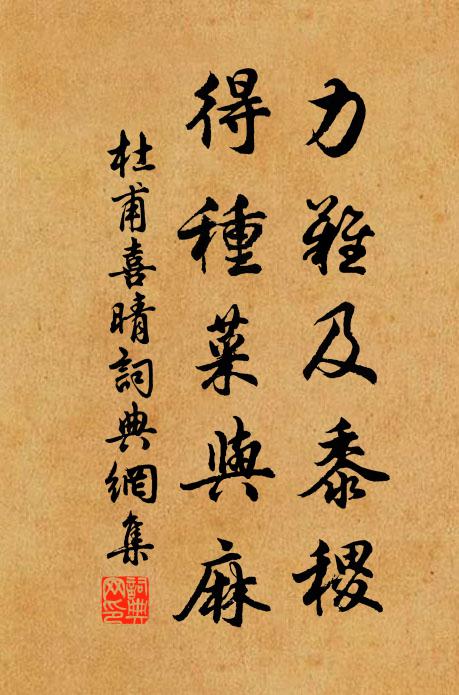 力難及黍稷
得種菜與麻
杜甫喜晴詞典網集
詞典网印